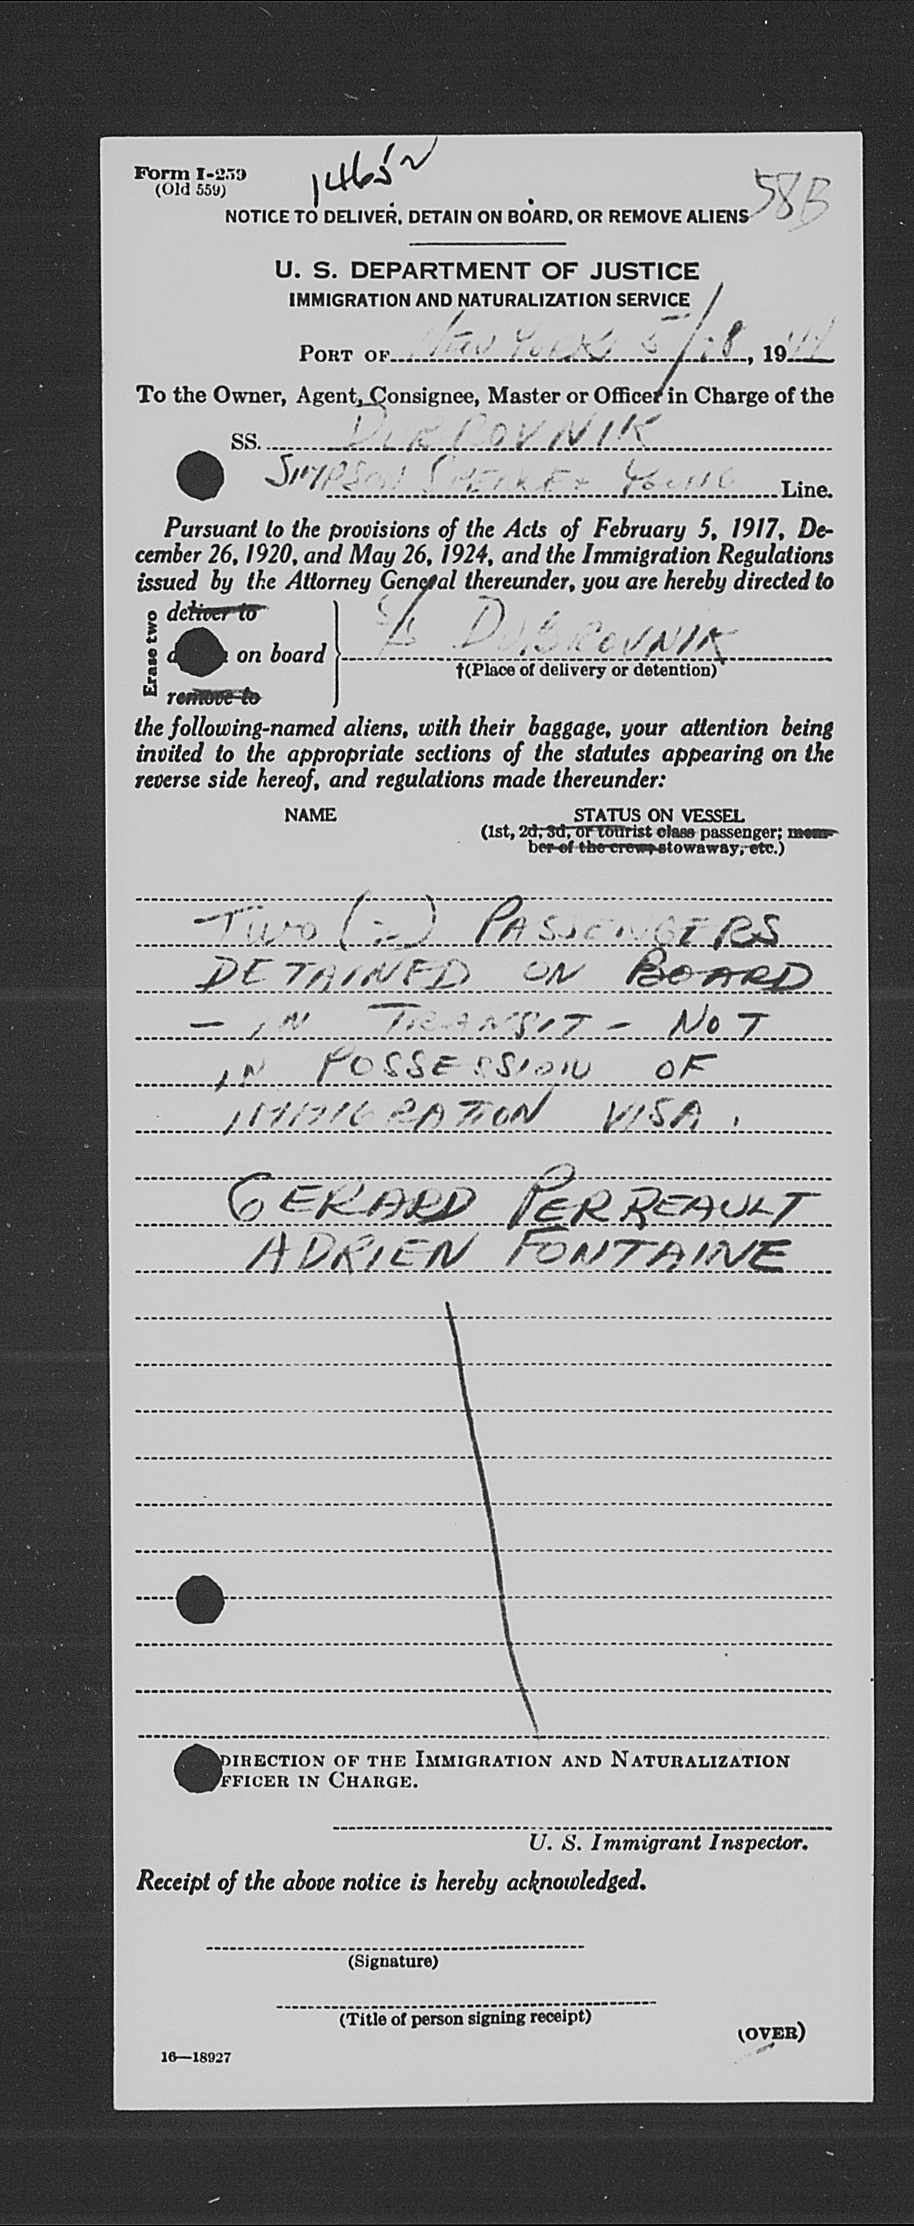 Form I-259
(Old 559)
14652
58B
NOTICE TO DELIVER, DETAIN ON BOARD, OR REMOVE ALIENS
U. S. DEPARTMENT OF JUSTICE
IMMIGRATION AND NATURALIZATION SERVICE
PORT OF NEW YORK 5/28, 1941
To the Owner, Agent, Consignee, Master or Officer in Charge of the
SS. DUBROVNIK
SIMPSON SPENCE & YOUNG Line.
Pursuant to the provisions of the Acts of February 5, 1917, De-
cember 26, 1920, and May 26, 1924, and the Immigration Regulations
issued by the Attorney General thereunder, you are hereby directed to
Erase two
deliver to
on board
remove to
S/S DUBROVNIK
†(Place of delivery or detention)
the following-named aliens, with their baggage, your attention being
invited to the appropriate sections of the statutes appearing on the
reverse side hereof, and regulations made thereunder:
NAME STATUS ON VESSEL
(1st, 2d, 3d, or tourist class passenger; mem-
ber of the crew, stowaway, etc.)
TWO (2) PASSENGERS
DETAINED ON BOARD
- IN TRANSIT - NOT
IN POSSESSION OF
IMMIGRATION VISA.
GERARD PERREAULT
ADRIEN FONTAINE
DIRECTION OF THE IMMIGRATION AND NATURALIZATION
FFICER IN CHARGE.
U. S. Immigrant Inspector.
Receipt of the above notice is hereby acknowledged.
(Signature)
(Title of person signing receipt)
(OVER)
16—18927